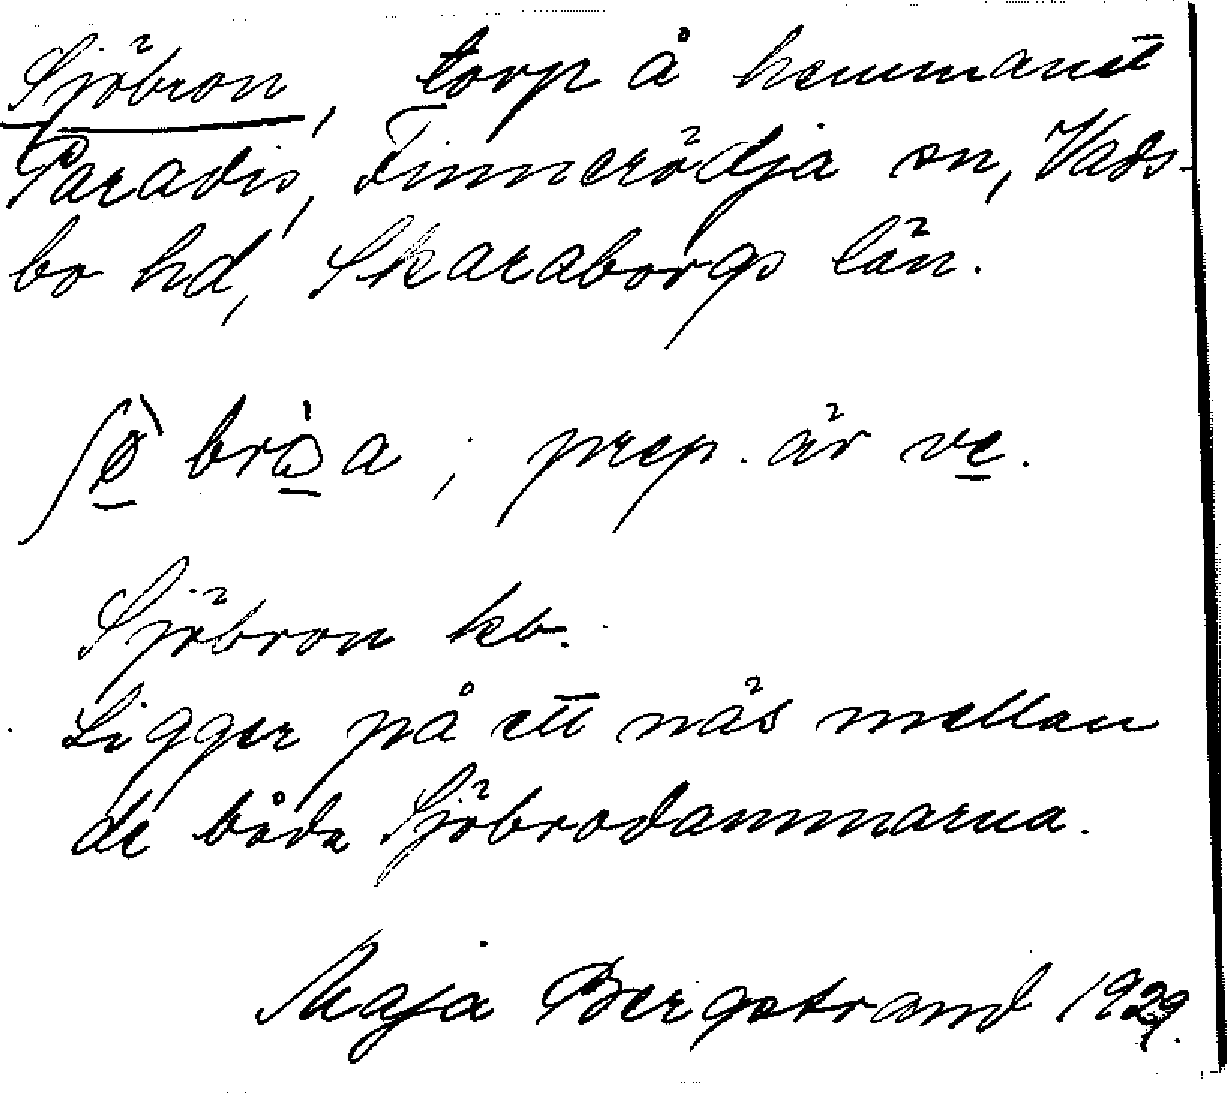 Sjöbron, torp å hemmanet
Paradis, Finnerödja sn, Vads-
bo hd, Skaraborgs län.
prep. är ve.
Sjöbron kb.
Ligger på ett näs mellan
de båda Sjöbrodammarna.
Maja Bergstrand 1929.